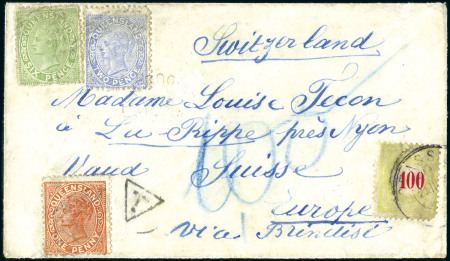 QUEENSLAND
SIX PENCE
QUEENSLAND
TWO PENCE
Switzerland
Madame Louise Tecon
à La Rippe près Nyon
Vaud Suisse
Europe
via Brindisi
QUEENSLAND
ONE PENNY
T
100
100